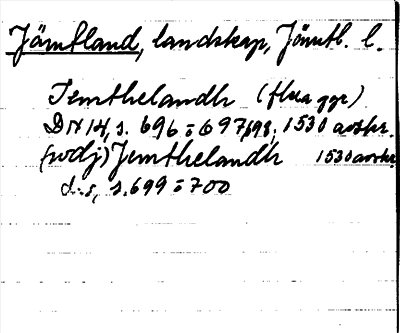 Jämtland, landskap, Jämtl. l.
Jemthelandh (flera ggr)
DN 14, s. 696-697, 698, 1530 avskr.
(vidj) Jemthelandh 1530 avskr.
d:s, s. 699-700